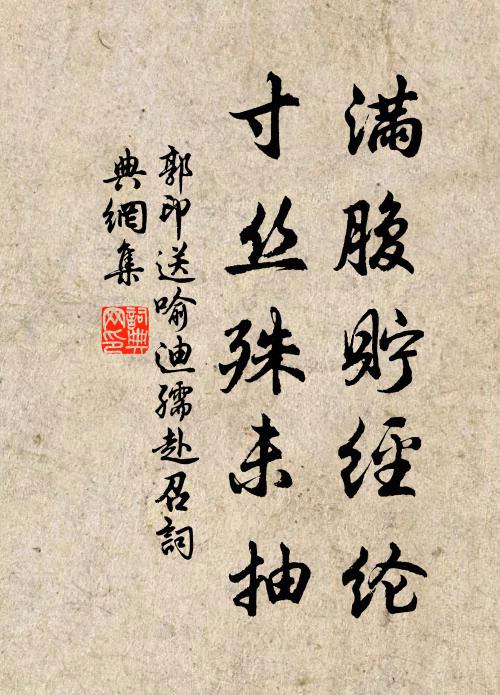 满腹貯經纶
寸丝殊未抽
郭印送喻迪孺赴召詞
典網集
詞典
网印